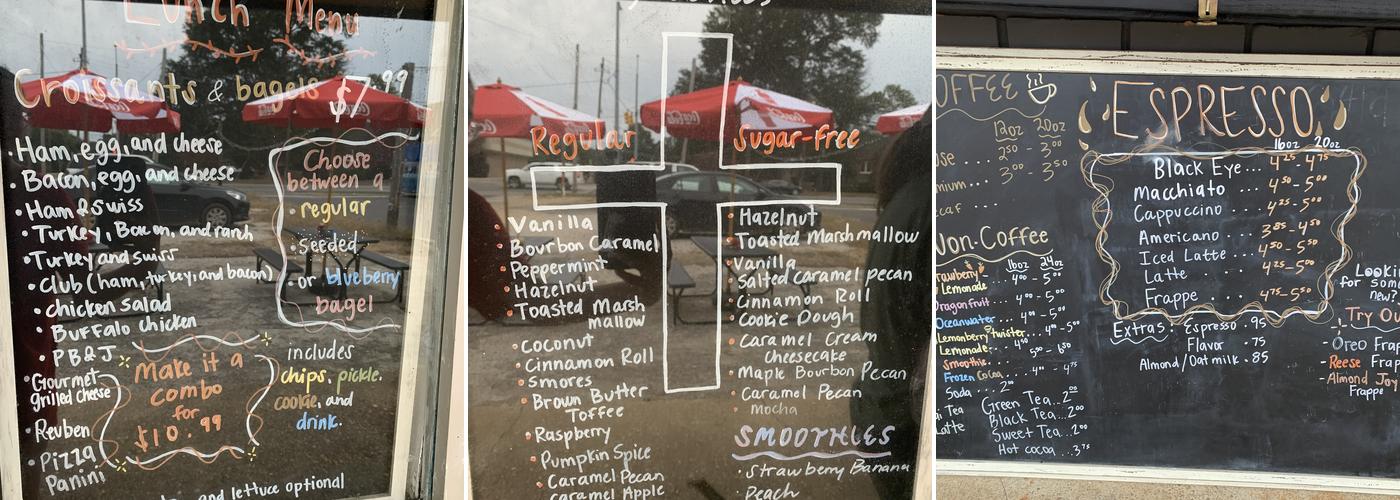 Lunch Menu
Croissants & bagels $7.99
• Ham, egg, and cheese
• Bacon, egg, and cheese
• Ham & Swiss
• Turkey, Bacon, and ranch
• Turkey and swiss
• club (ham, turkey, and bacon)
• chicken salad
• Buffalo chicken
• PB&J
• Gourmet
grilled cheese
• Reuben
• Pizza
Panini
Choose
between a
• regular
• seeded
• or blueberry
bagel
Make it a
combo
for
$10.99
includes
chips, pickle,
cookie, and
drink.
and lettuce optional
Regular
• Vanilla
• Bourbon Caramel
• Peppermint
• Hazelnut
• Toasted Marsh
mallow
• Coconut
• Cinnamon Roll
• Smores
• Brown Butter
Toffee
• Raspberry
• Pumpkin Spice
• Caramel Pecan
Caramel Apple
Sugar-Free
• Hazelnut
• Toasted Marshmallow
• Vanilla
• Salted caramel pecan
• Cinnamon Roll
• Cookie Dough
• Caramel Cream
Cheesecake
• Maple Bourbon Pecan
• Caramel Pecan
• Mocha
SMOOTHIES
• Strawberry Banana
• Peach
OFFEE
12oz 20oz
2 50 - 3 00
3 00 - 3 50
ecaf
Non-Coffee
16oz 24oz
Lemonade 4 00 - 5 00
Dragonfruit 4 00 - 5 00
Oceanwater 4 00 - 5 00
Lemonberry twister 4 00 - 5 00
Lemonade
Smoothie 5 00 - 6 50
Frozen Cocoa 4 00 - 4 75
Soda . 2 00
Green Tea...2 00
Black Tea...2 00
Sweet Tea...2 00
Hot cocoa...3 75
Latte
ESPRESSO
16oz 20oz
Black Eye... 4 25 - 4 75
Macchiato ... 4 50 - 5 00
Cappuccino ... 4 25 - 5 00
Americano ... 3 85 - 4 50
Iced Latte ... 4 50 - 5 00
Latte ... 4 25 - 5 00
Frappe ... 4 75 - 5 50
Extras: Espresso .95
Flavor .75
Almond/Oat milk .85
Looki
for som
new?
Try Ou
- Oreo Frap
- Reese Frap
- Almond Joy
Frappe